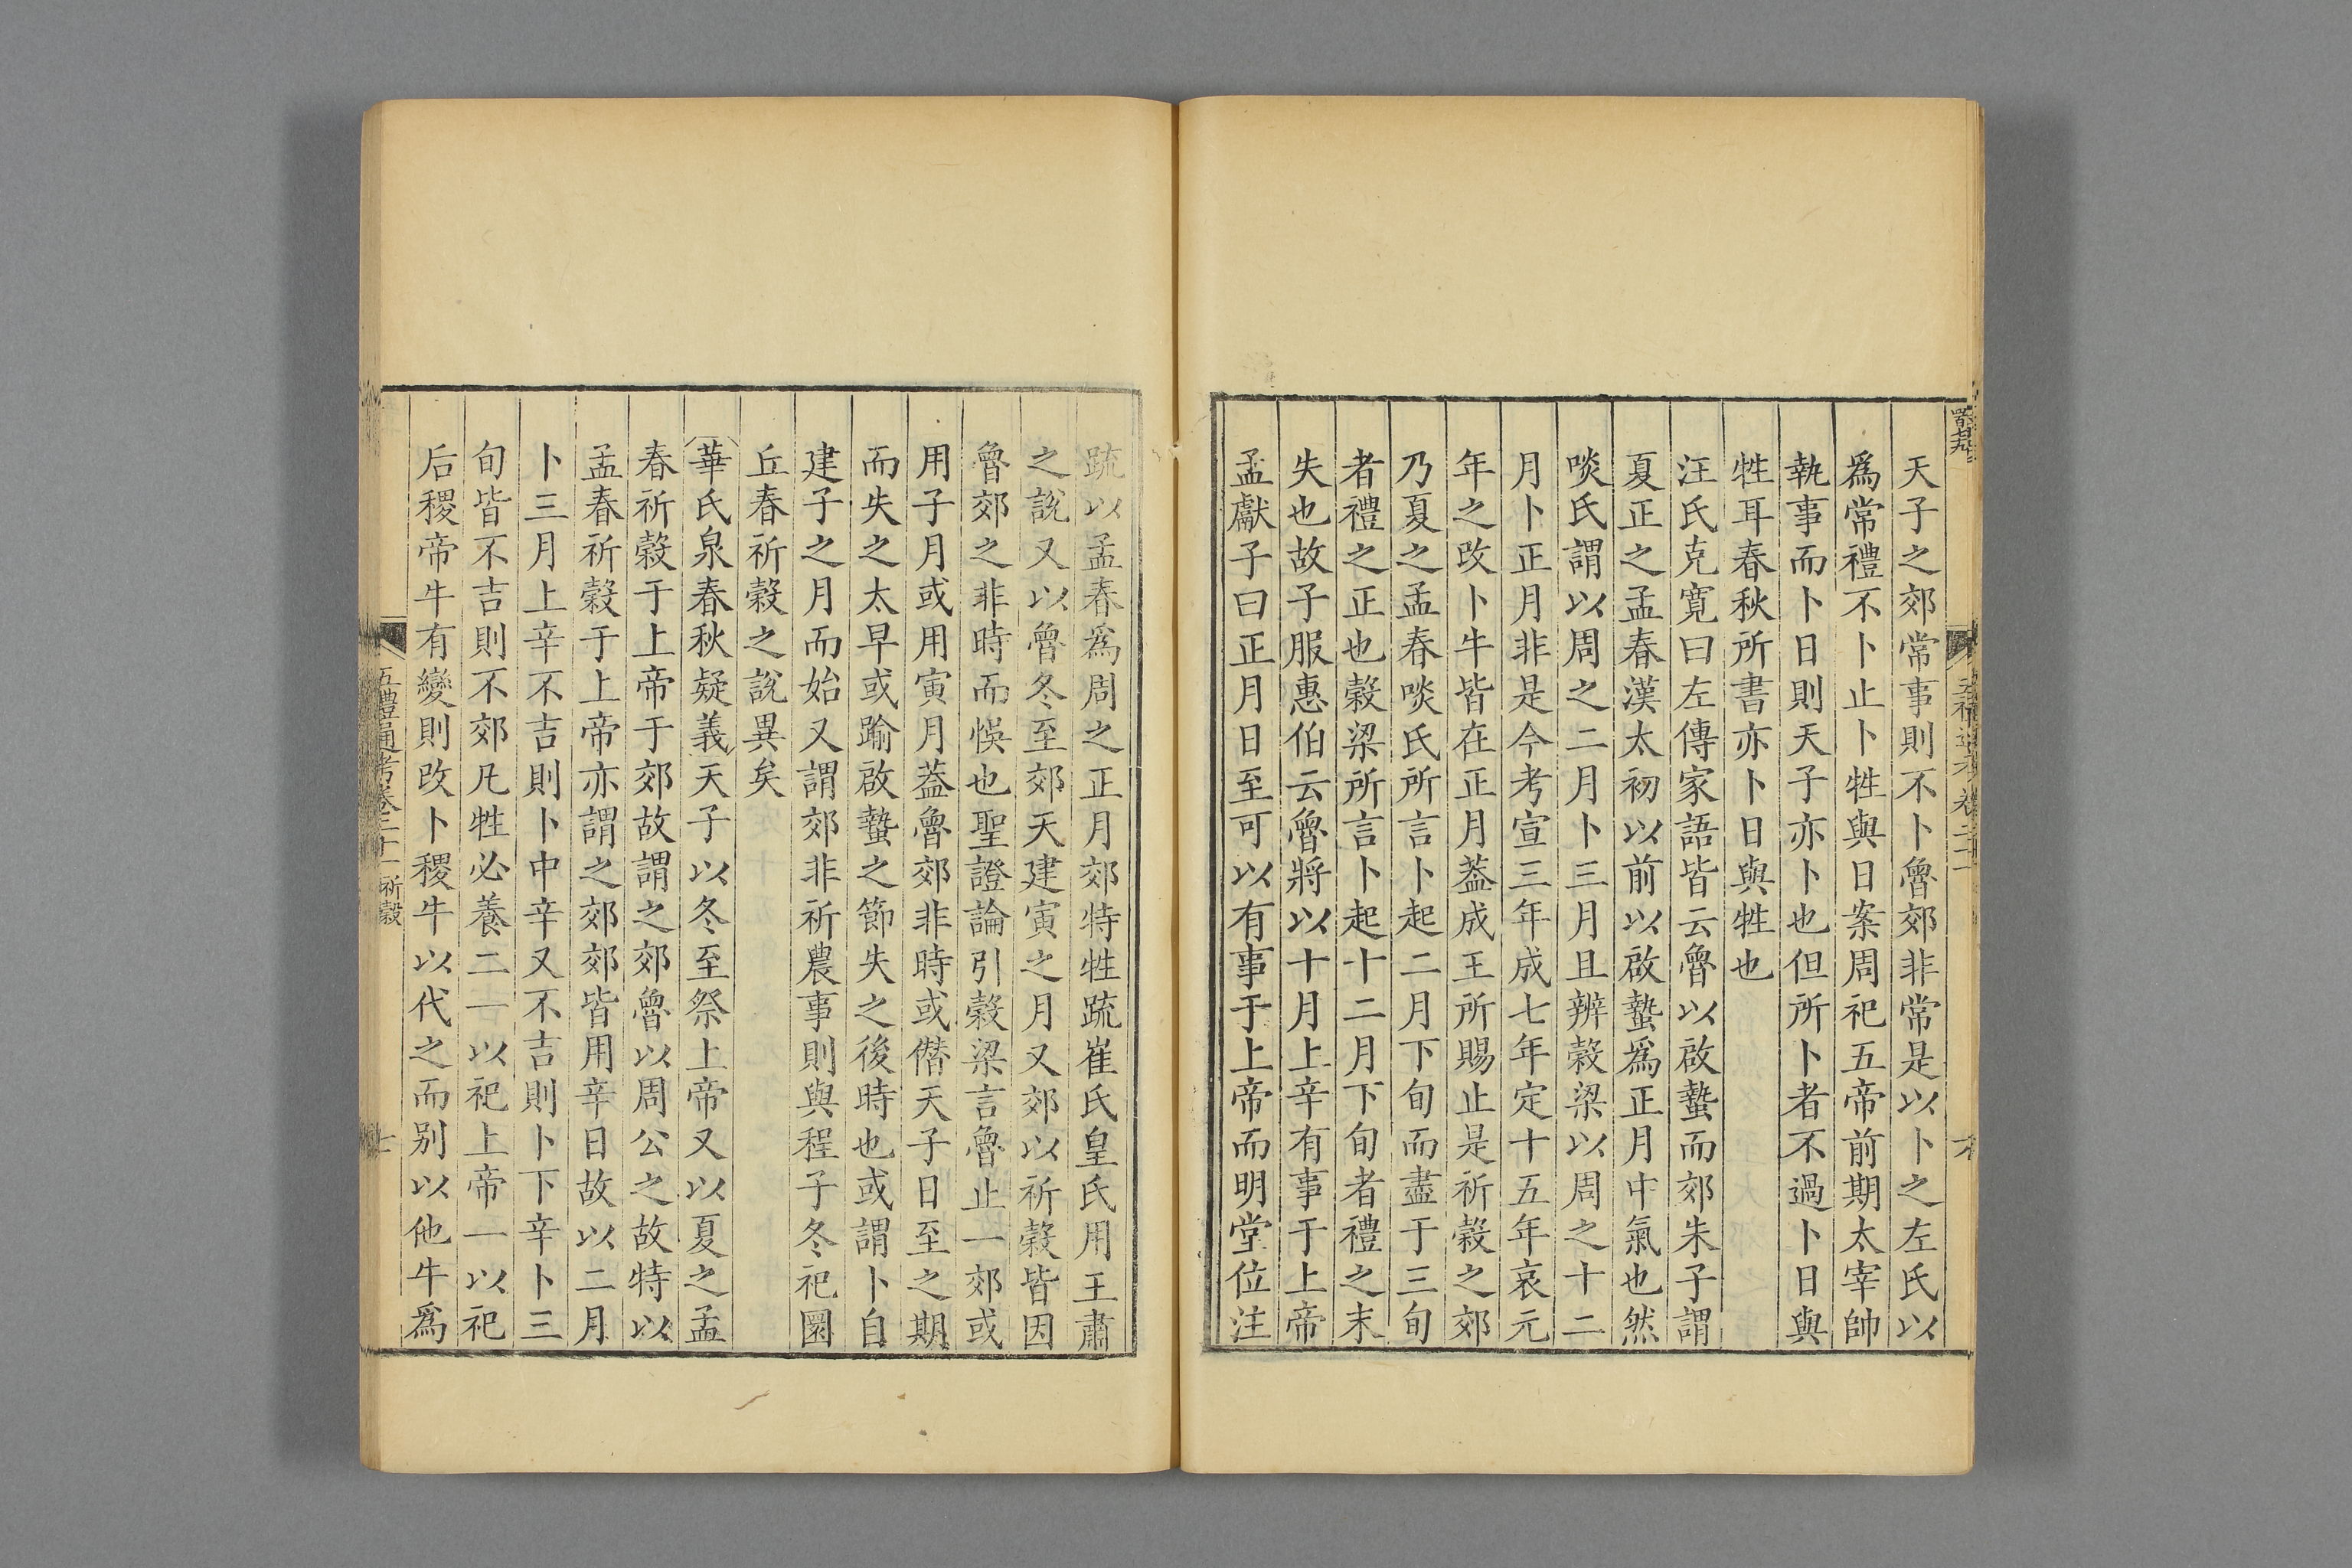 天子之郊常事則不卜魯郊非常是以卜之左氏以
爲常禮不卜止卜牲與日案周祀五帝前期太宰帥
執事而卜日則天子亦卜也但所卜者不過卜日與
牲耳春秋所書亦卜日與牲也
汪氏克寬曰左傳家語皆云魯以啟蟄而郊朱子謂
夏正之孟春漢太初以前以啟蟄爲正月中氣也然
啖氏謂以周之二月卜三月且辨穀梁以周之十二
月卜正月非是今考宣三年成七年定十五年哀元
年之改卜牛皆在正月葢成王所賜止是祈穀之郊
乃夏之孟春啖氏所言卜起二月下旬而盡于三旬
者禮之正也穀梁所言卜起十二月下旬者禮之末
失也故子服惠伯云魯將以十月上辛有事于上帝
孟獻子曰正月日至可以有事于上帝而明堂位注
疏以孟春爲周之正月郊特牲疏崔氏皇氏用王肅
之說又以魯冬至郊天建寅之月又郊以祈穀皆因
魯郊之非時而悞也聖證論引穀梁言魯止一郊或
用子月或用寅月葢魯郊非時或僭天子日至之期
而失之太早或踰啟蟄之節失之後時也或謂卜自
建子之月而始又謂郊非祈農事則與程子冬祀圜
丘春祈穀之說異矣
華氏泉春秋疑義天子以冬至祭上帝又以夏之孟
春祈穀于上帝于郊故謂之郊魯以周公之故特以
孟春祈穀于上帝亦謂之郊郊皆用辛日故以二月
卜三月上辛不吉則卜中辛又不吉則卜下辛卜三
旬皆不吉則不郊凡牲必養二一以祀上帝一以祀
后稷帝牛有變則改卜稷牛以代之而别以他牛爲
五禮通考卷二十一祈穀
七